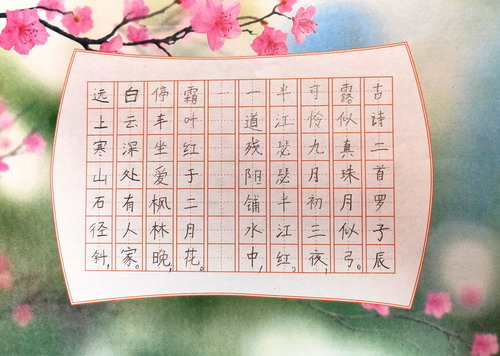 古诗二首罗子辰
远上寒山石径斜,
白云深处有人家。
停车坐爱枫林晚,
霜叶红于二月花。
一
一道残阳铺水中,
半江瑟瑟半江红。
可怜九月初三夜,
露似真珠月似弓。